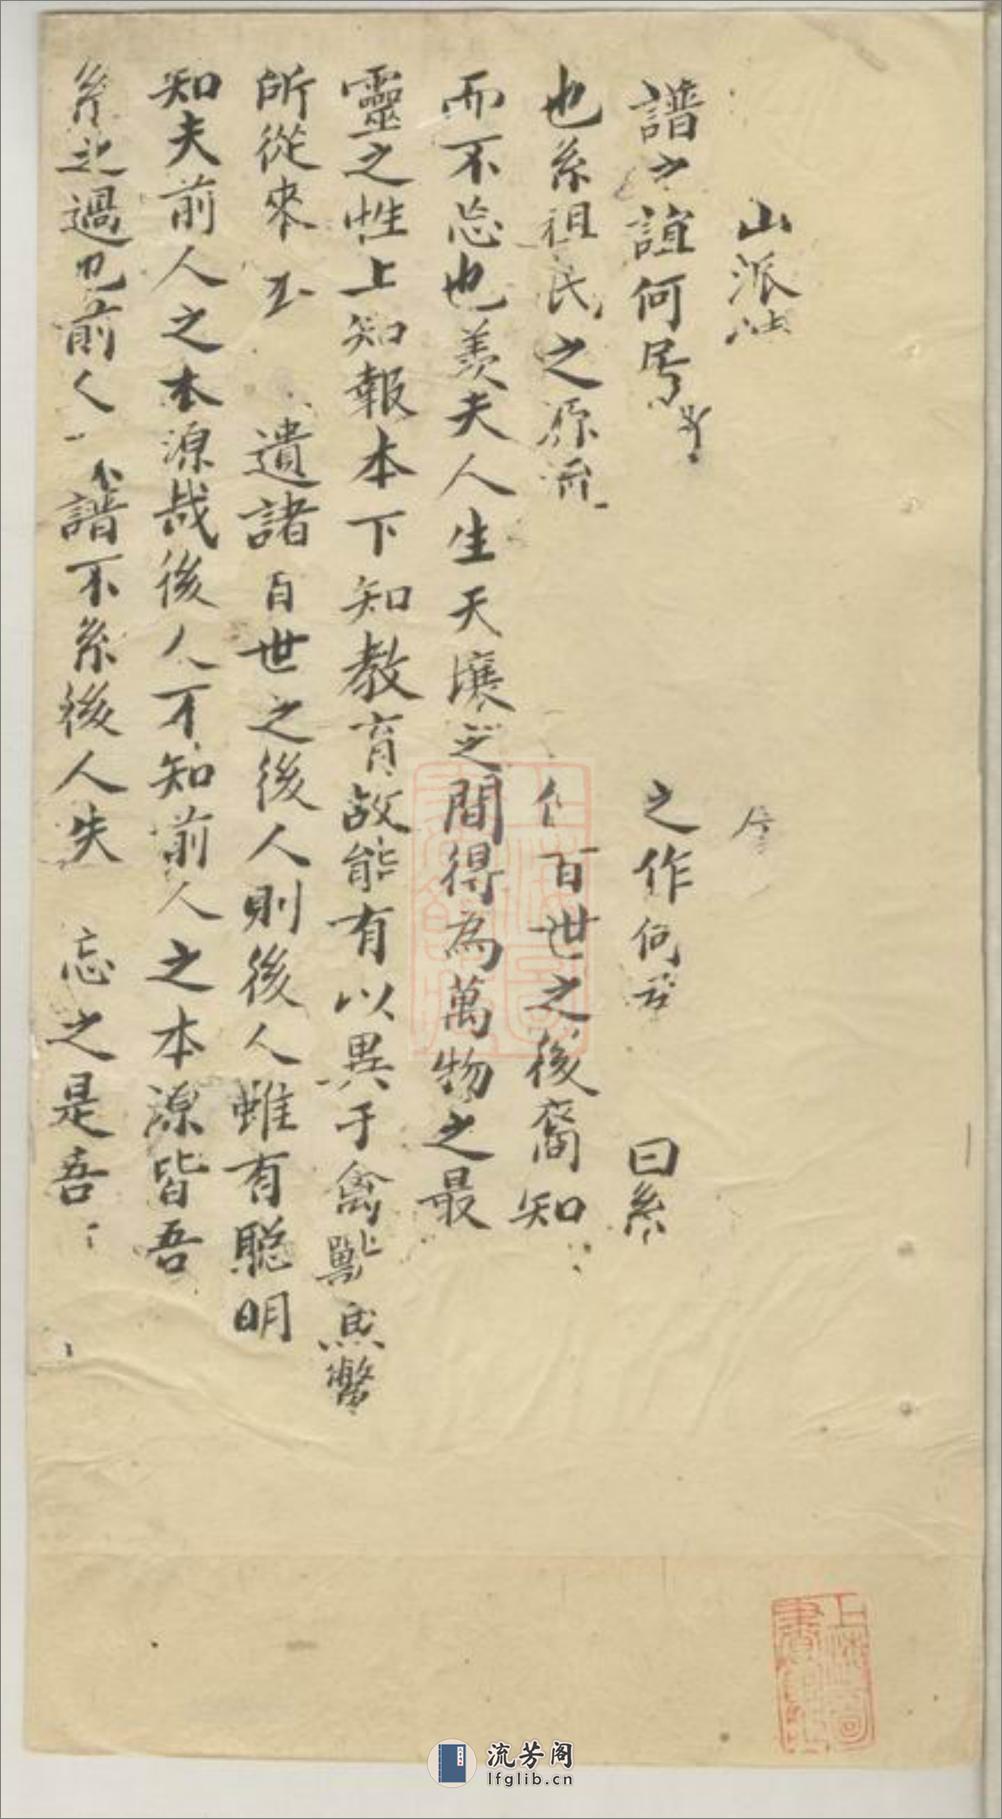 山派
譜之誼何 之作何 曰系
也系祖氏之源 百世之後裔知
而不忘也羨夫人生天壤之間得為萬物之最
靈之性上知報本下知教育故能有以異于禽獸焉幣
所從來 遺諸百世之後人則後人雖有聰明
知夫前人之本源哉後人不知前人之本源皆吾
過也前人 譜不系後人失 忘之是吾
上海圖書館藏
流芳阁
lfglib.cn